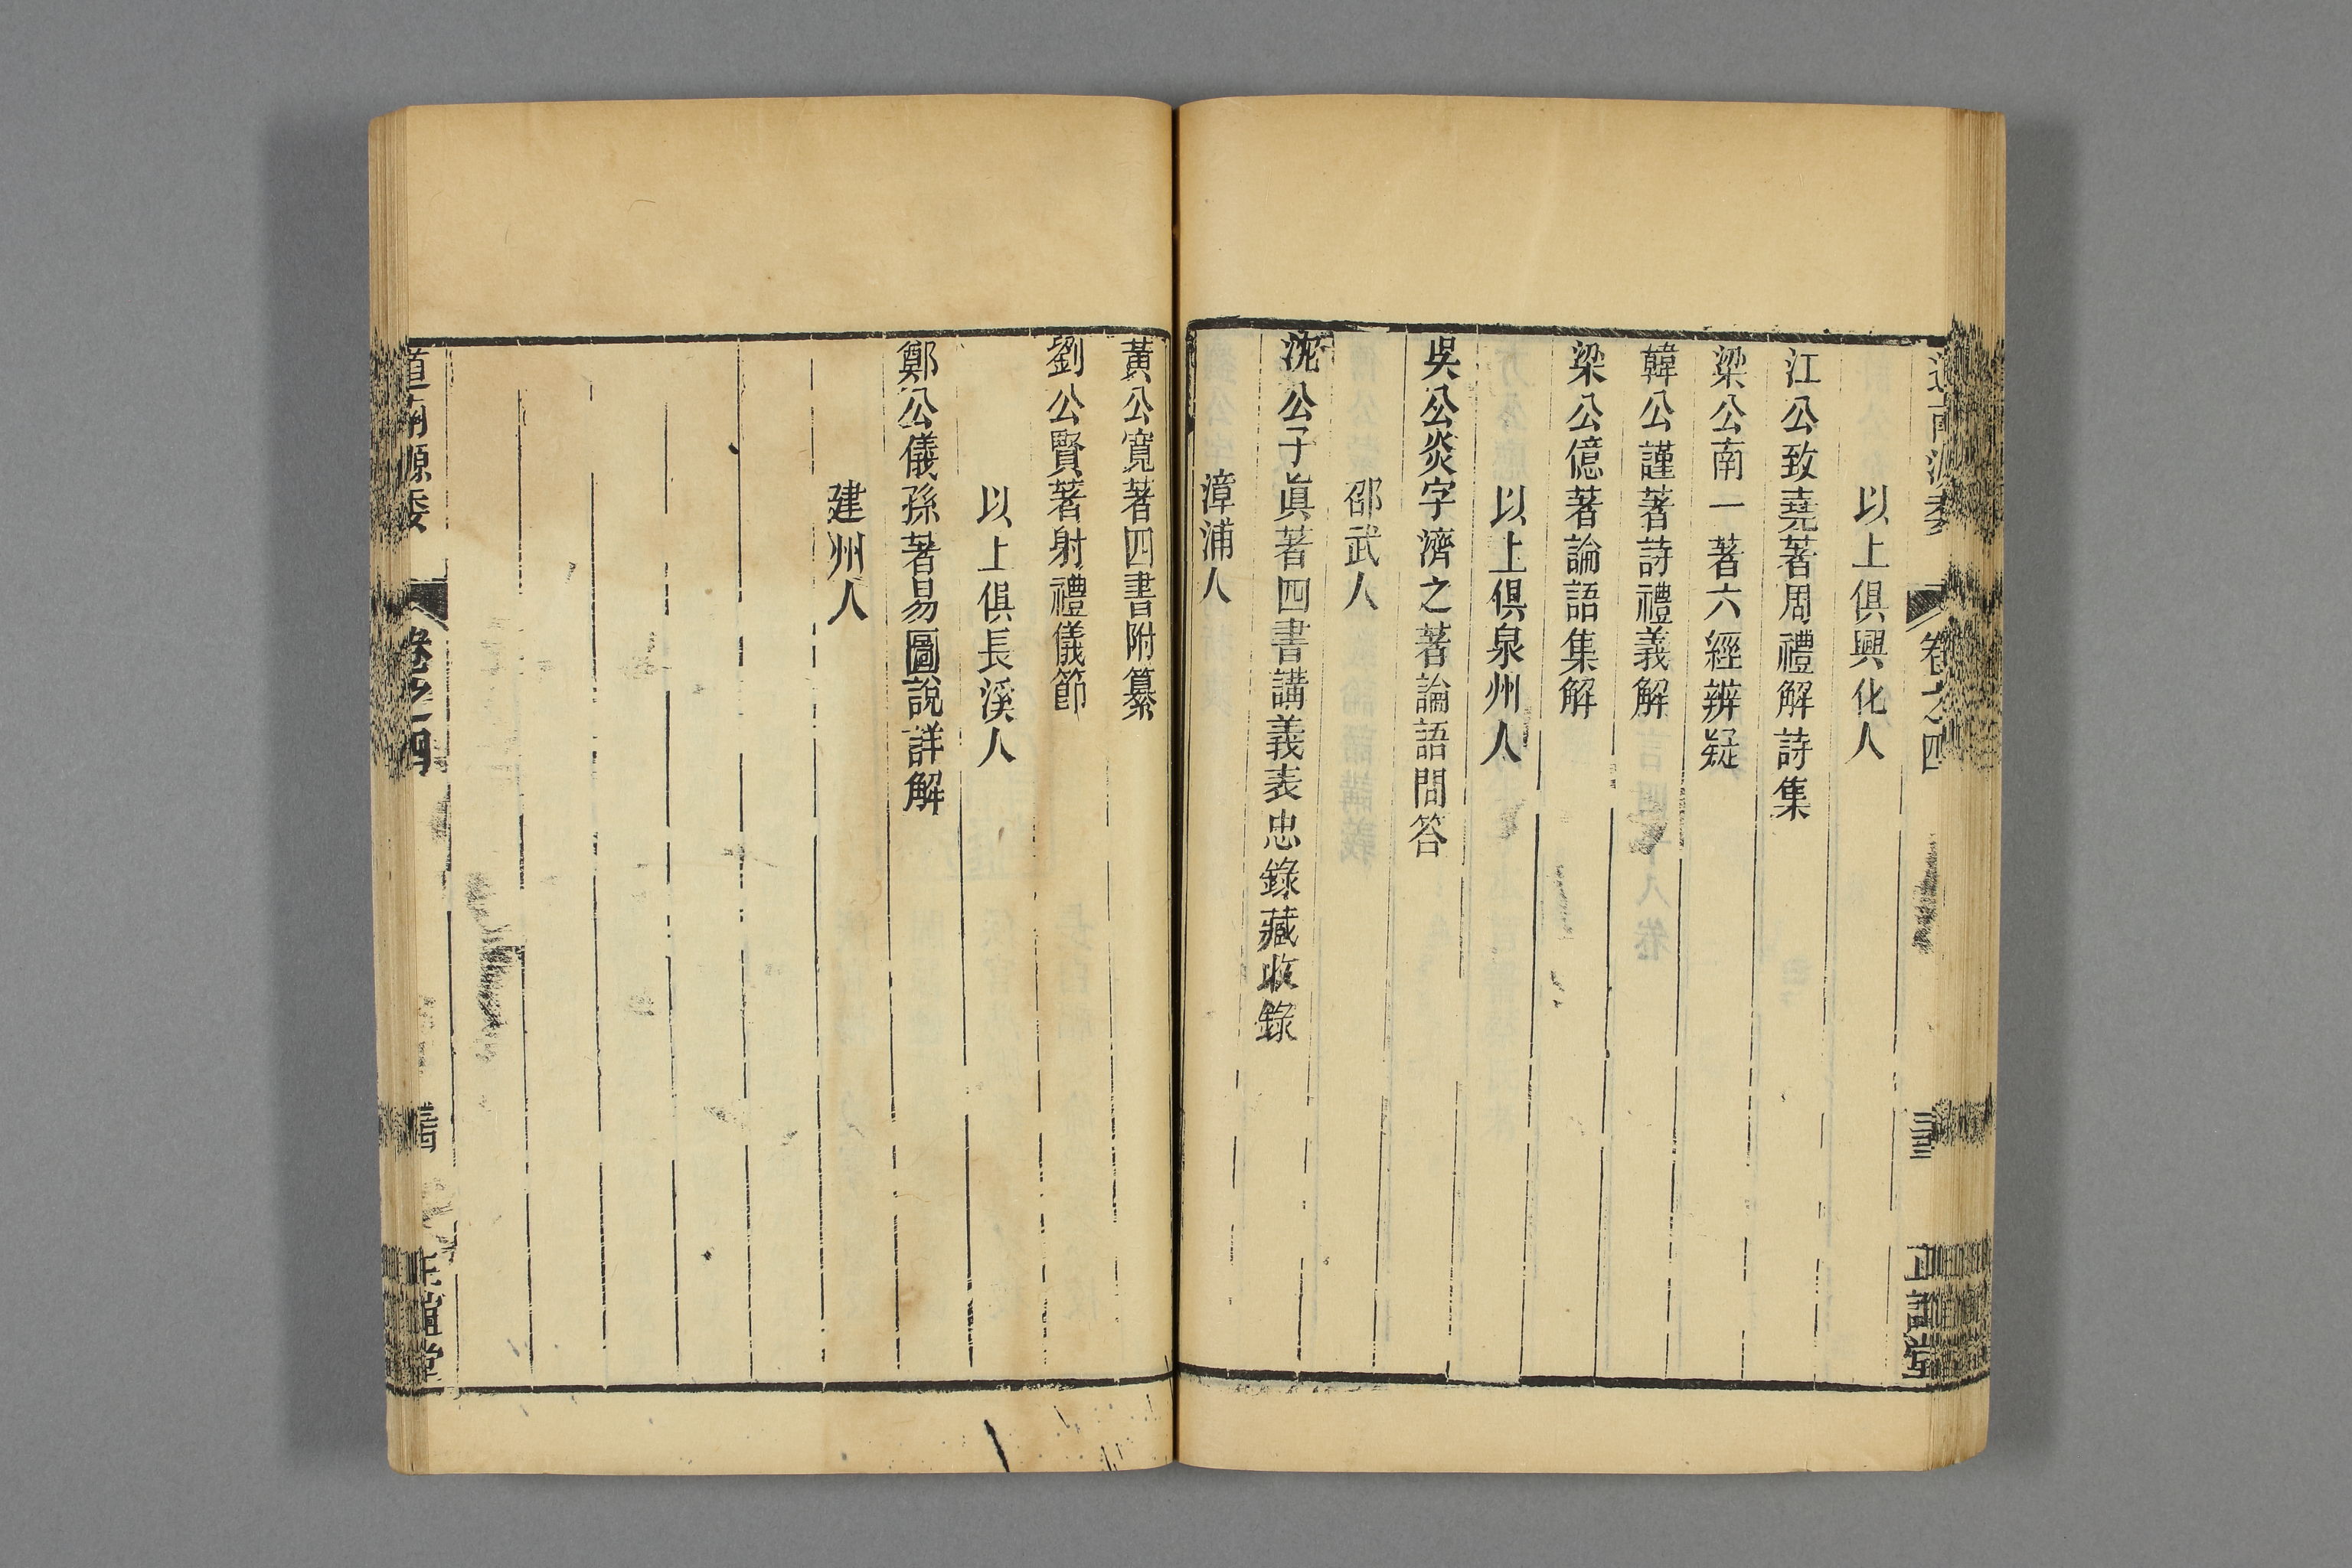 以上俱興化人
江公致堯著周禮解詩集
梁公南一著六經辨疑
韓公謹著詩禮義解
梁公億著論語集解
以上俱泉州人
吳公炎字濟之著論語問答
邵武人
沈公子眞著四書講義表忠錄藏收錄
漳浦人
黃公寬著四書附纂
劉公賢著射禮儀節
以上俱長溪人
鄭公儀孫著易圖說詳解
建州人
道南源委
卷之四
正誼堂